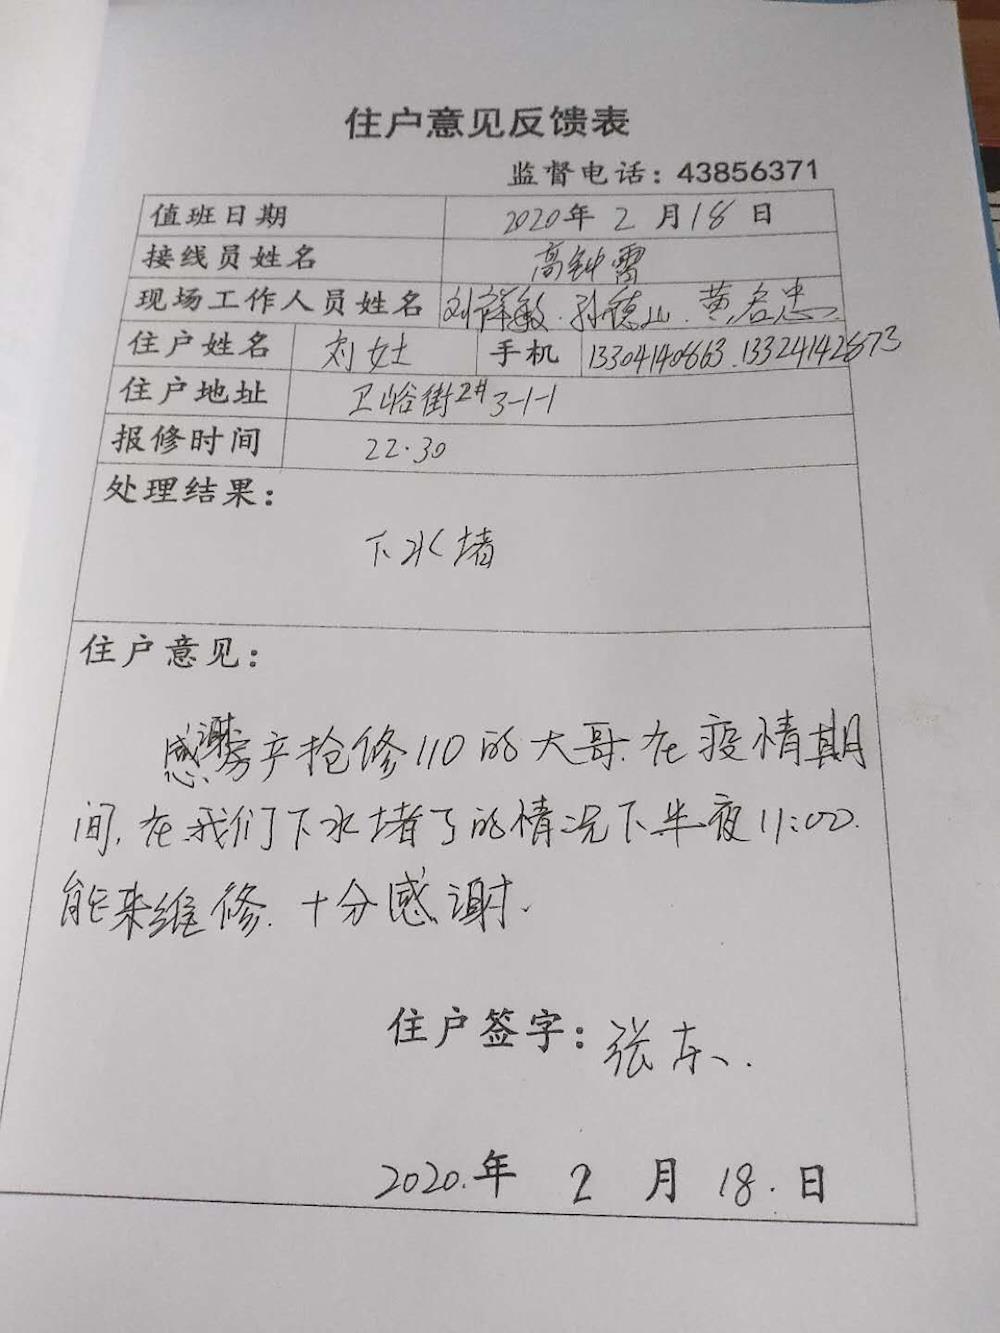 住户意见反馈表
监督电话：43856371
值班日期 2020年 2 月18 日
接线员姓名 高钟雷
现场工作人员姓名 刘祥敏.孙德山.黄启忠
住户姓名 刘女士 手机 13304140863.13324142873
住户地址 卫峪街2#3-1-1
报修时间 22.30
处理结果：
下水堵
住户意见：
感谢房产抢修110的大哥.在疫情期
间,在我们下水堵了的情况下半夜11:00.
能来维修.十分感谢.
住户签字：张东.
2020.年 2 月 18.日